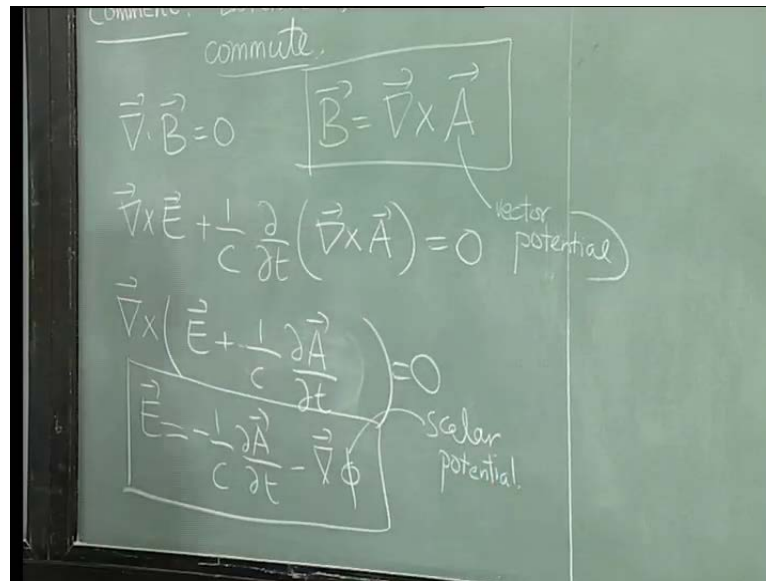 Comment:
commute.
∇⃗·B⃗=0 B⃗=∇⃗×A⃗
vector
potential
∇⃗×E⃗+1/c ∂/∂t(∇⃗×A⃗)=0
∇⃗×(E⃗+1/c ∂A⃗/∂t)=0
E⃗=-1/c ∂A⃗/∂t-∇⃗ϕ
scalar
potential.